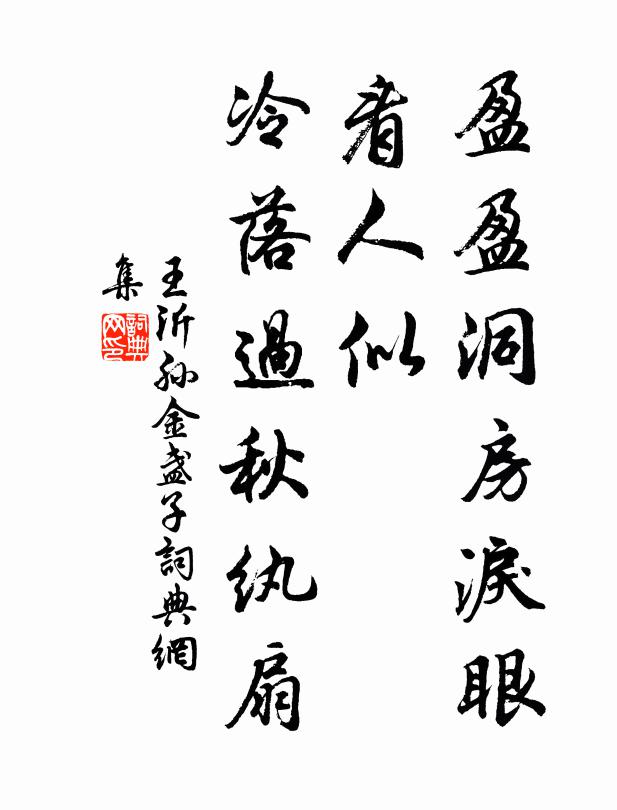 盈盈洞房淚眼
看人似
冷落過秋紈扇
王沂孙金盏子詞典網
集
詞典
网印